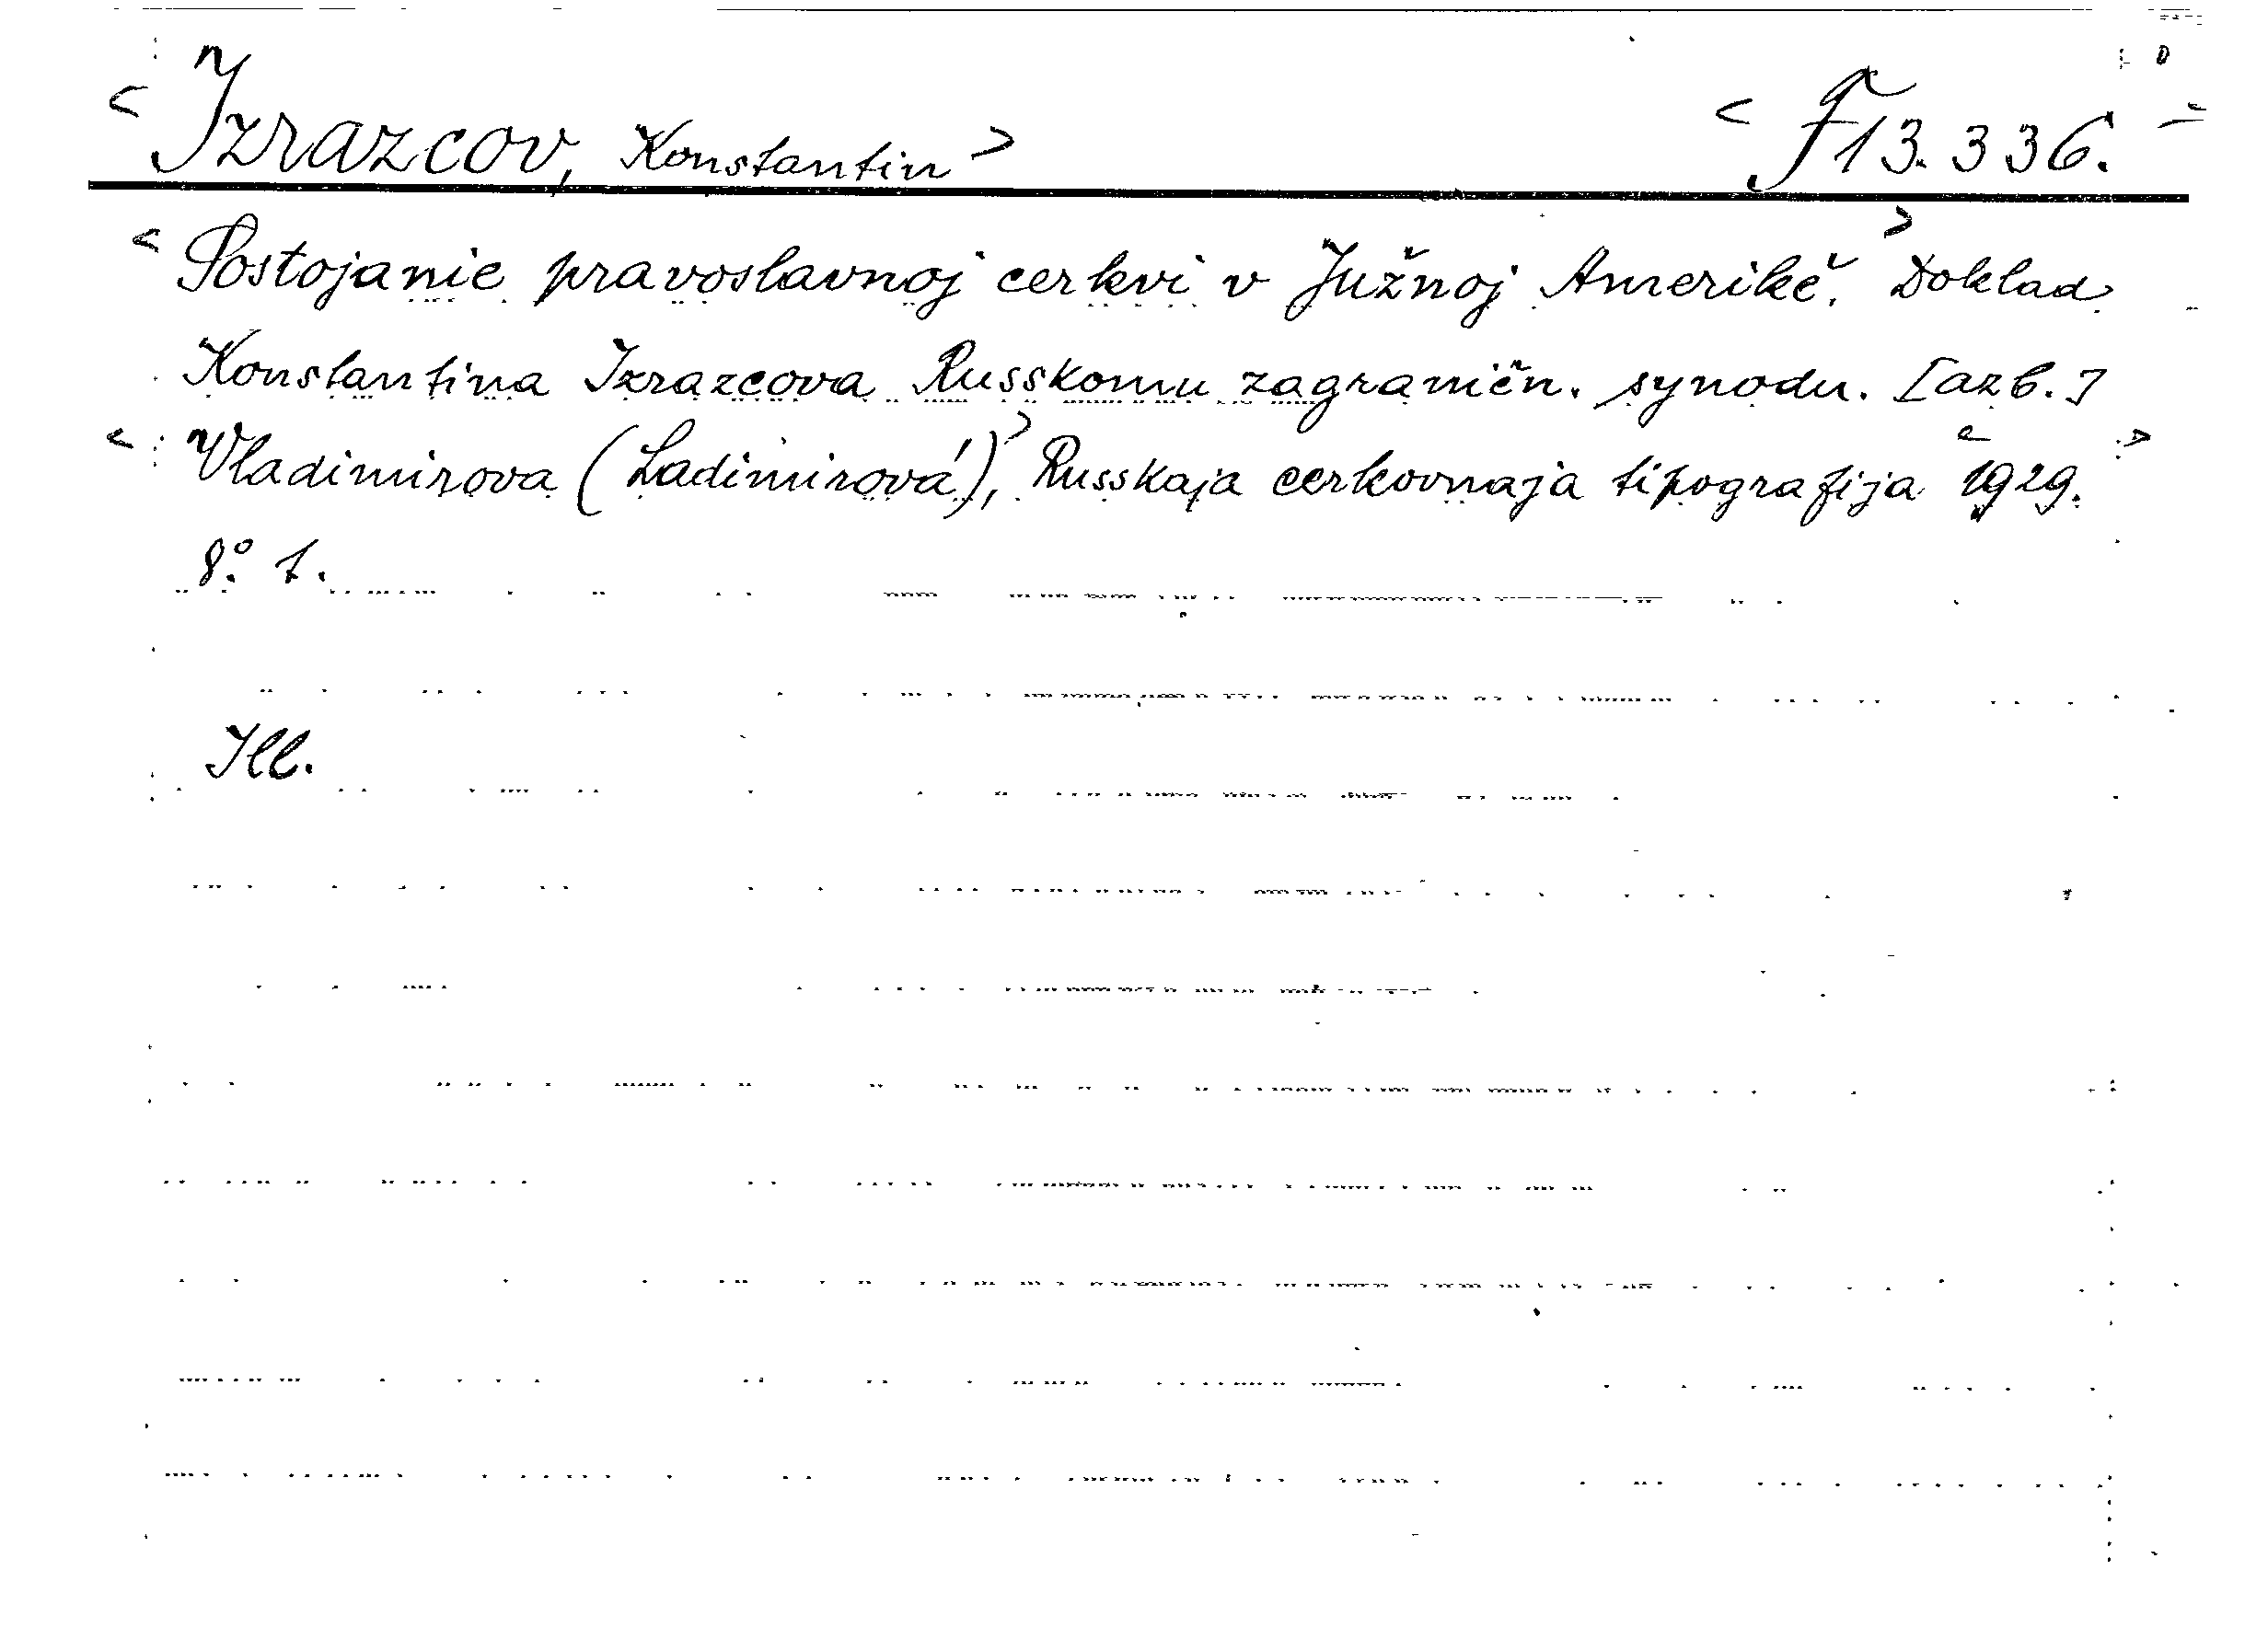 < Izrazcov, Konstantin > < F 13.336. =
< Sostojanie pravoslavnoj cerkvi v Južnoj Amerikě. > Doklad
Konstantina Izrazcova Russkomu zagraničn. synodu. [azb.]
< Vladimirova (Ladimirová), > Russkaja cerkovnaja tipografija < 1929. >
8.° t.
Ill.